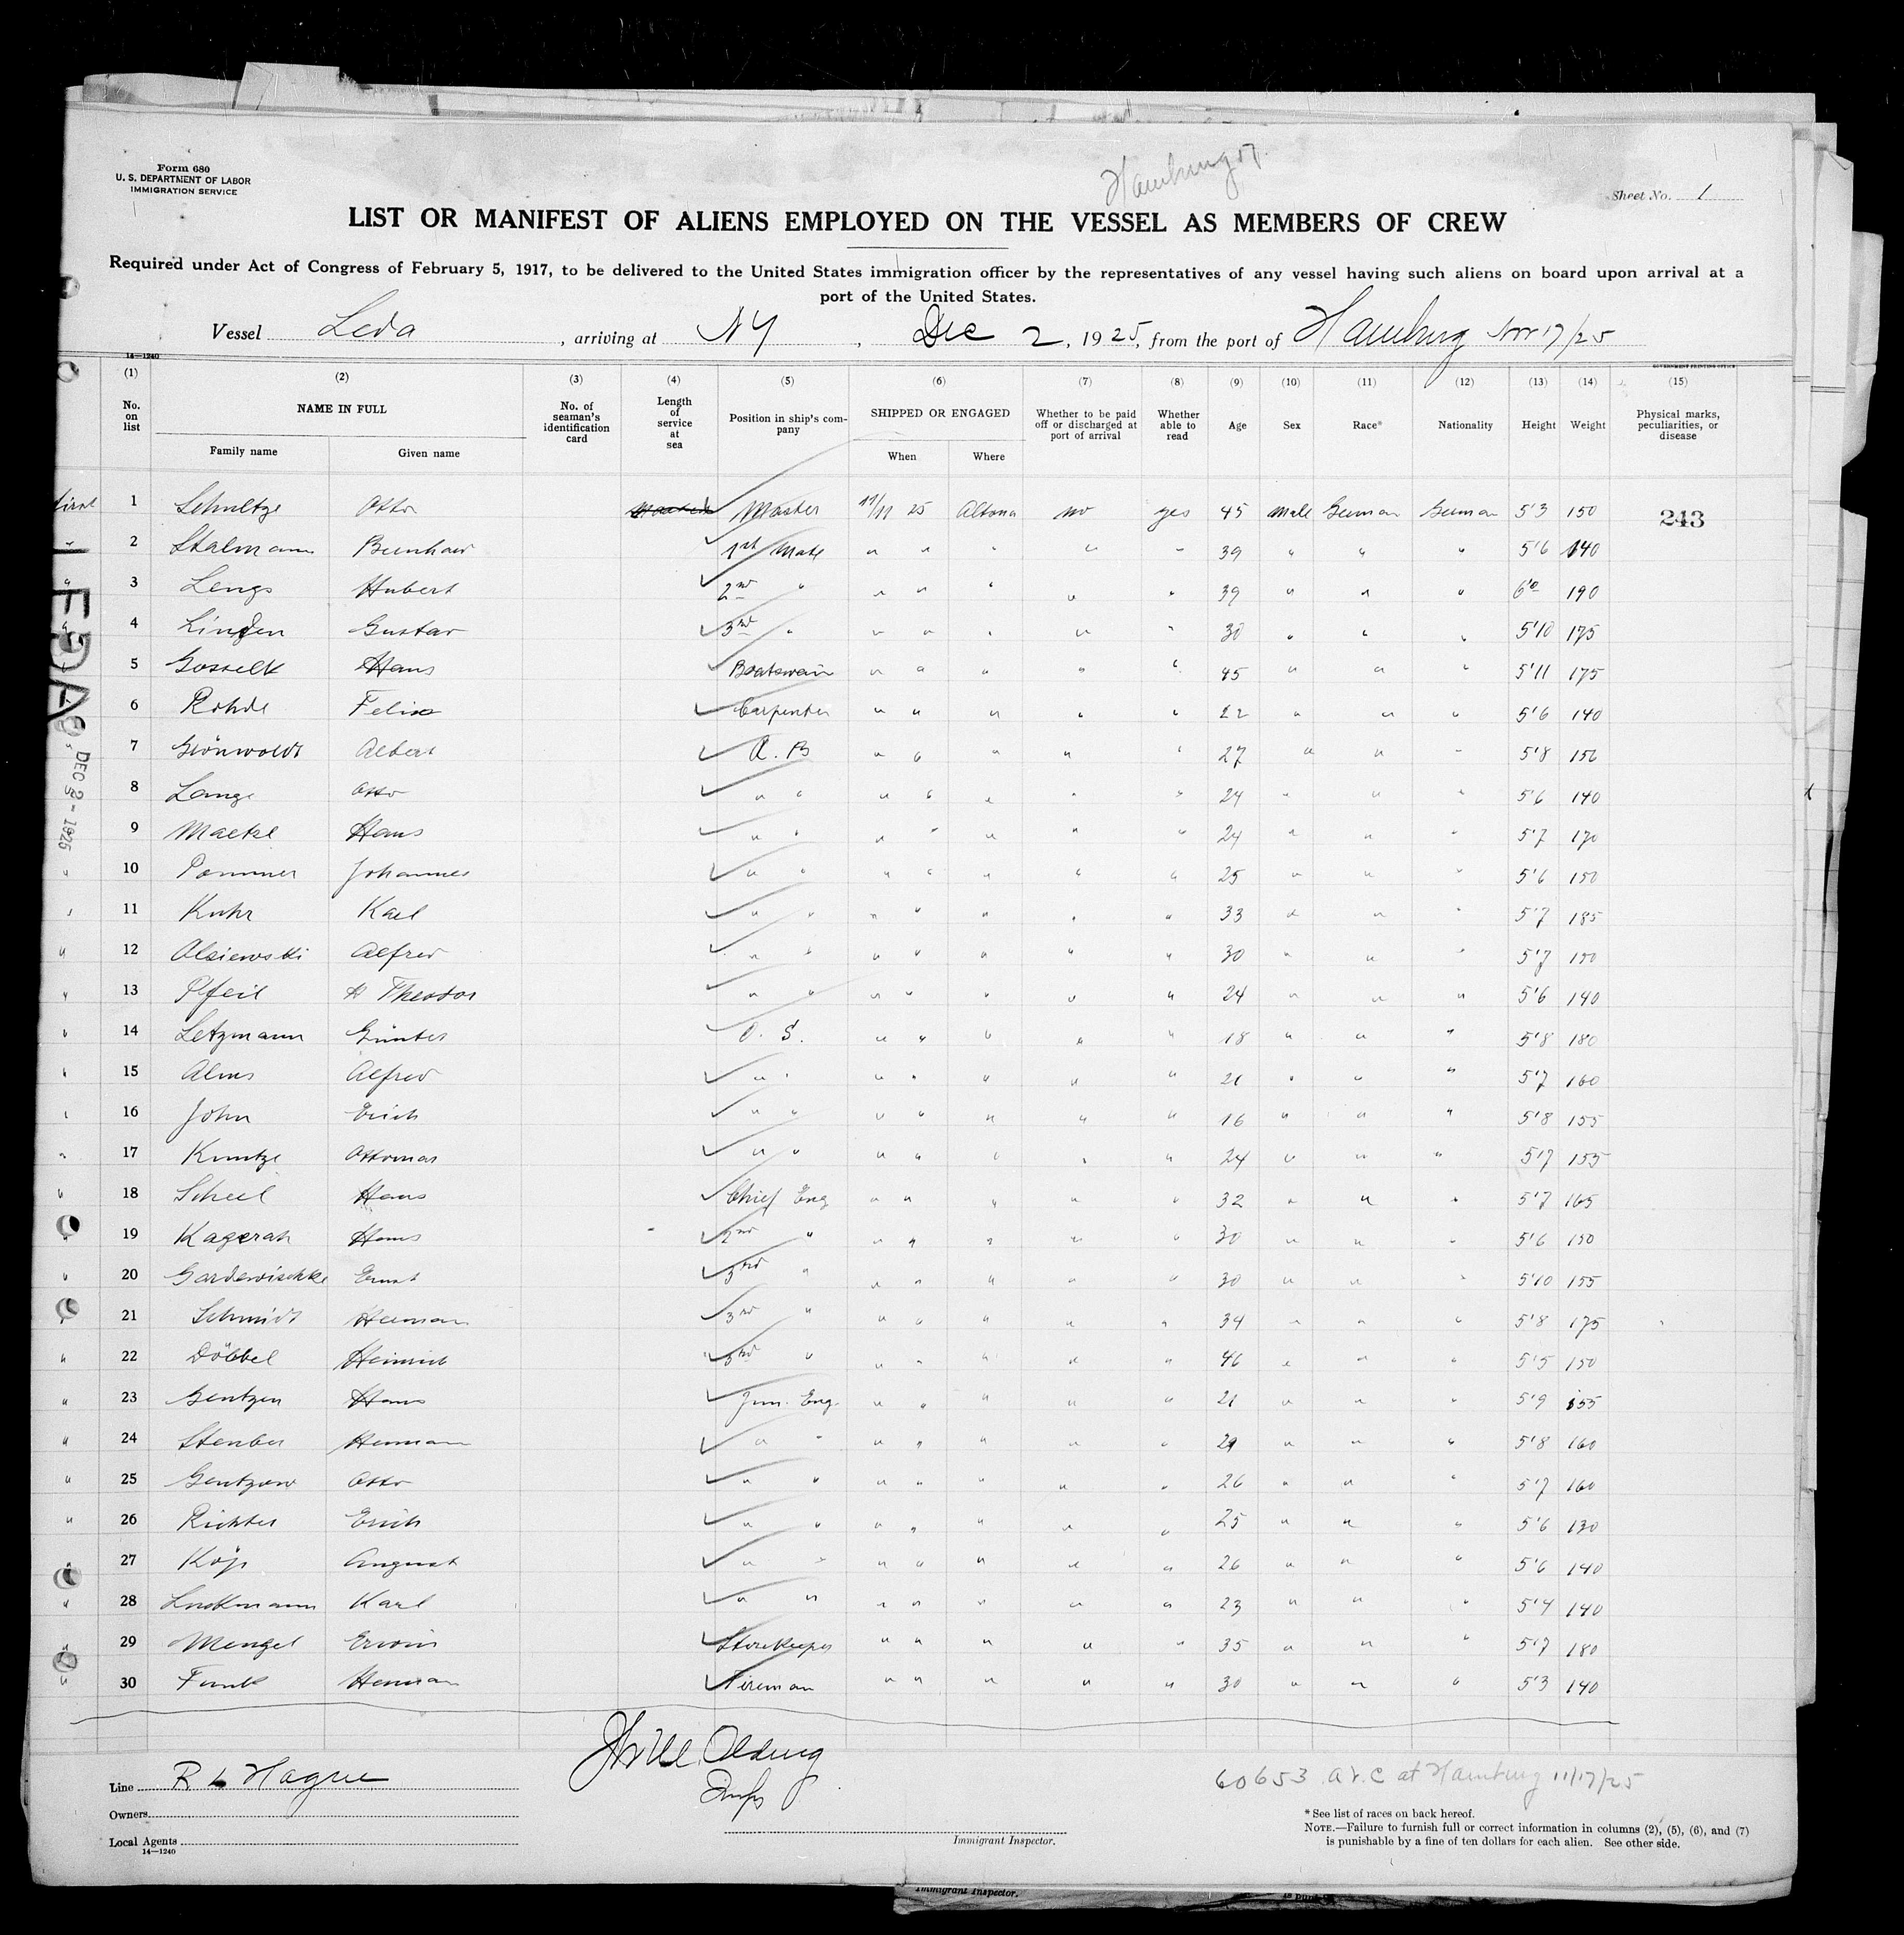 Hamburg
Form 680
U. S. DEPARTMENT OF LABOR
IMMIGRATION SERVICE
Sheet No. 1
LIST OR MANIFEST OF ALIENS EMPLOYED ON THE VESSEL AS MEMBERS OF CREW
Required under Act of Congress of February 5, 1917, to be delivered to the United States immigration officer by the representatives of any vessel having such aliens on board upon arrival at a
port of the United States.
Vessel Leda, arriving at NY, Dec 2, 1925, from the port of Hamburg Nov 17/25
14—1240
GOVERNMENT PRINTING OFFICE
(1) (2) (3) (4) (5) (6) (7) (8) (9) (10) (11) (12) (13) (14) (15)
No. on list
NAME IN FULL
Family name
Given name
No. of seaman's identification card
Length of service at sea
Position in ship's company
SHIPPED OR ENGAGED
When
Where
Whether to be paid off or discharged at port of arrival
Whether able to read
Age
Sex
Race*
Nationality
Height
Weight
Physical marks, peculiarities, or disease
LEDA
DEC 2 - 1925
first 1 Schultze Otto Master 17/11 25 Altona no yes 45 Male German German 5'3 150 243
2 Stalmann 1st Mate " " " " " 39 " " " 5'6 140
3 Lengs Hubert 2nd " " " " " " 39 " " " 6'0 190
4 Linden Gustav 3rd " " " " " " 30 " " " 5'10 175
5 Hans Boatswain " " " " " 45 " " " 5'11 175
6 Rohde Felix Carpenter " " " " " 22 " " " 5'6 140
7 Grönwoldt Albert A. B " " " " " 27 " " " 5'8
8 Lange Otto " " " " " " " 24 " " " 5'6 140
9 Hans " " " " " " " 24 " " " 5'7 170
10 Pommer Johannes " " " " " " " 25 " " " 5'6 150
11 Kuhr Karl " " " " " " " 33 " " " 5'7 185
12 Alfred " " " " " " " 30 " " " 5'7 150
13 Pfeil Theodor " " " " " " " 24 " " " 5'6 140
14 Letzmann Günter O. S. " " " " " 18 " " " 5'8 180
15 Alms Alfred " " " " " " " 21 " " " 5'7 160
16 John Erich " " " " " " " 16 " " " 5'8 155
17 Kuntze Ottomar " " " " " " " 24 " " " 5'7 155
18 Scheel Hans Chief Eng " " " " " 32 " " " 5'7 165
19 Kagerah Hans 2nd " " " " " " 30 " " " 5'6 150
20 Gardewischke Ernst 3rd " " " " " " 30 " " " 5'10 155
21 Schmidt Herman 3rd " " " " " " 34 " " " 5'8 175
22 Döbbel Heinrich 3rd " " " " " " 46 " " " 5'5 150
23 Gentzen Hans Jun. Eng. " " " " " 21 " " " 5'9 155
24 Hermann " " " " " " " " " " 5'8 160
25 Gentzow Otto " " " " " " " 26 " " " 5'7 160
26 Richter Erich " " " " " " " 25 " " " 5'6 130
27 Köp August " " " " " " " 26 " " " 5'6 140
28 Karl " " " " " " " 23 " " " 5'4 140
29 Mengel Erwin Storekeeper " " " " " 35 " " " 5'7 180
30 Funk Herman Fireman " " " " " 30 " " " 5'3 140
Line R L Hague
Owners
Local Agents
14—1240
Immigrant Inspector.
60653 at Hamburg 11/17/25
* See list of races on back hereof.
NOTE.—Failure to furnish full or correct information in columns (2), (5), (6), and (7)
is punishable by a fine of ten dollars for each alien. See other side.
Immigrant Inspector.